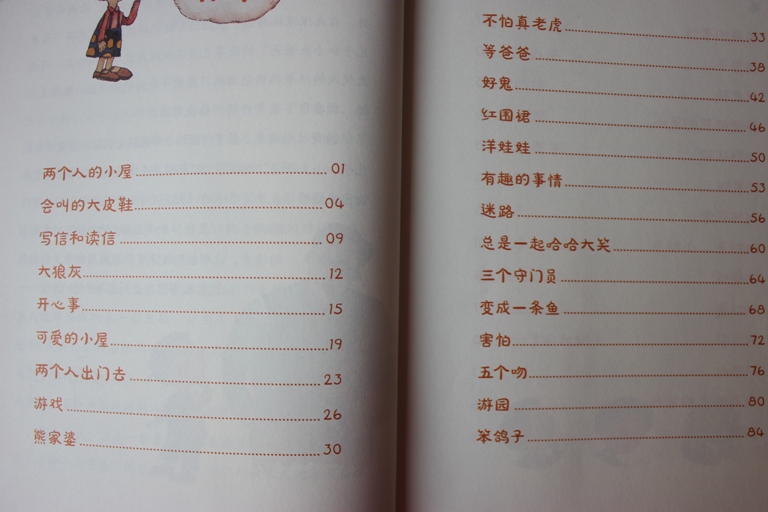 两个人的小屋 01
会叫的大皮鞋 04
写信和读信 09
大狼灰 12
开心事 15
可爱的小屋 19
两个人出门去 23
游戏 26
熊家婆 30
不怕真老虎 33
等爸爸 38
好鬼 42
红围裙 46
洋娃娃 50
有趣的事情 53
迷路 56
总是一起哈哈大笑 60
三个守门员 64
变成一条鱼 68
害怕 72
五个吻 76
游园 80
笨鸽子 84